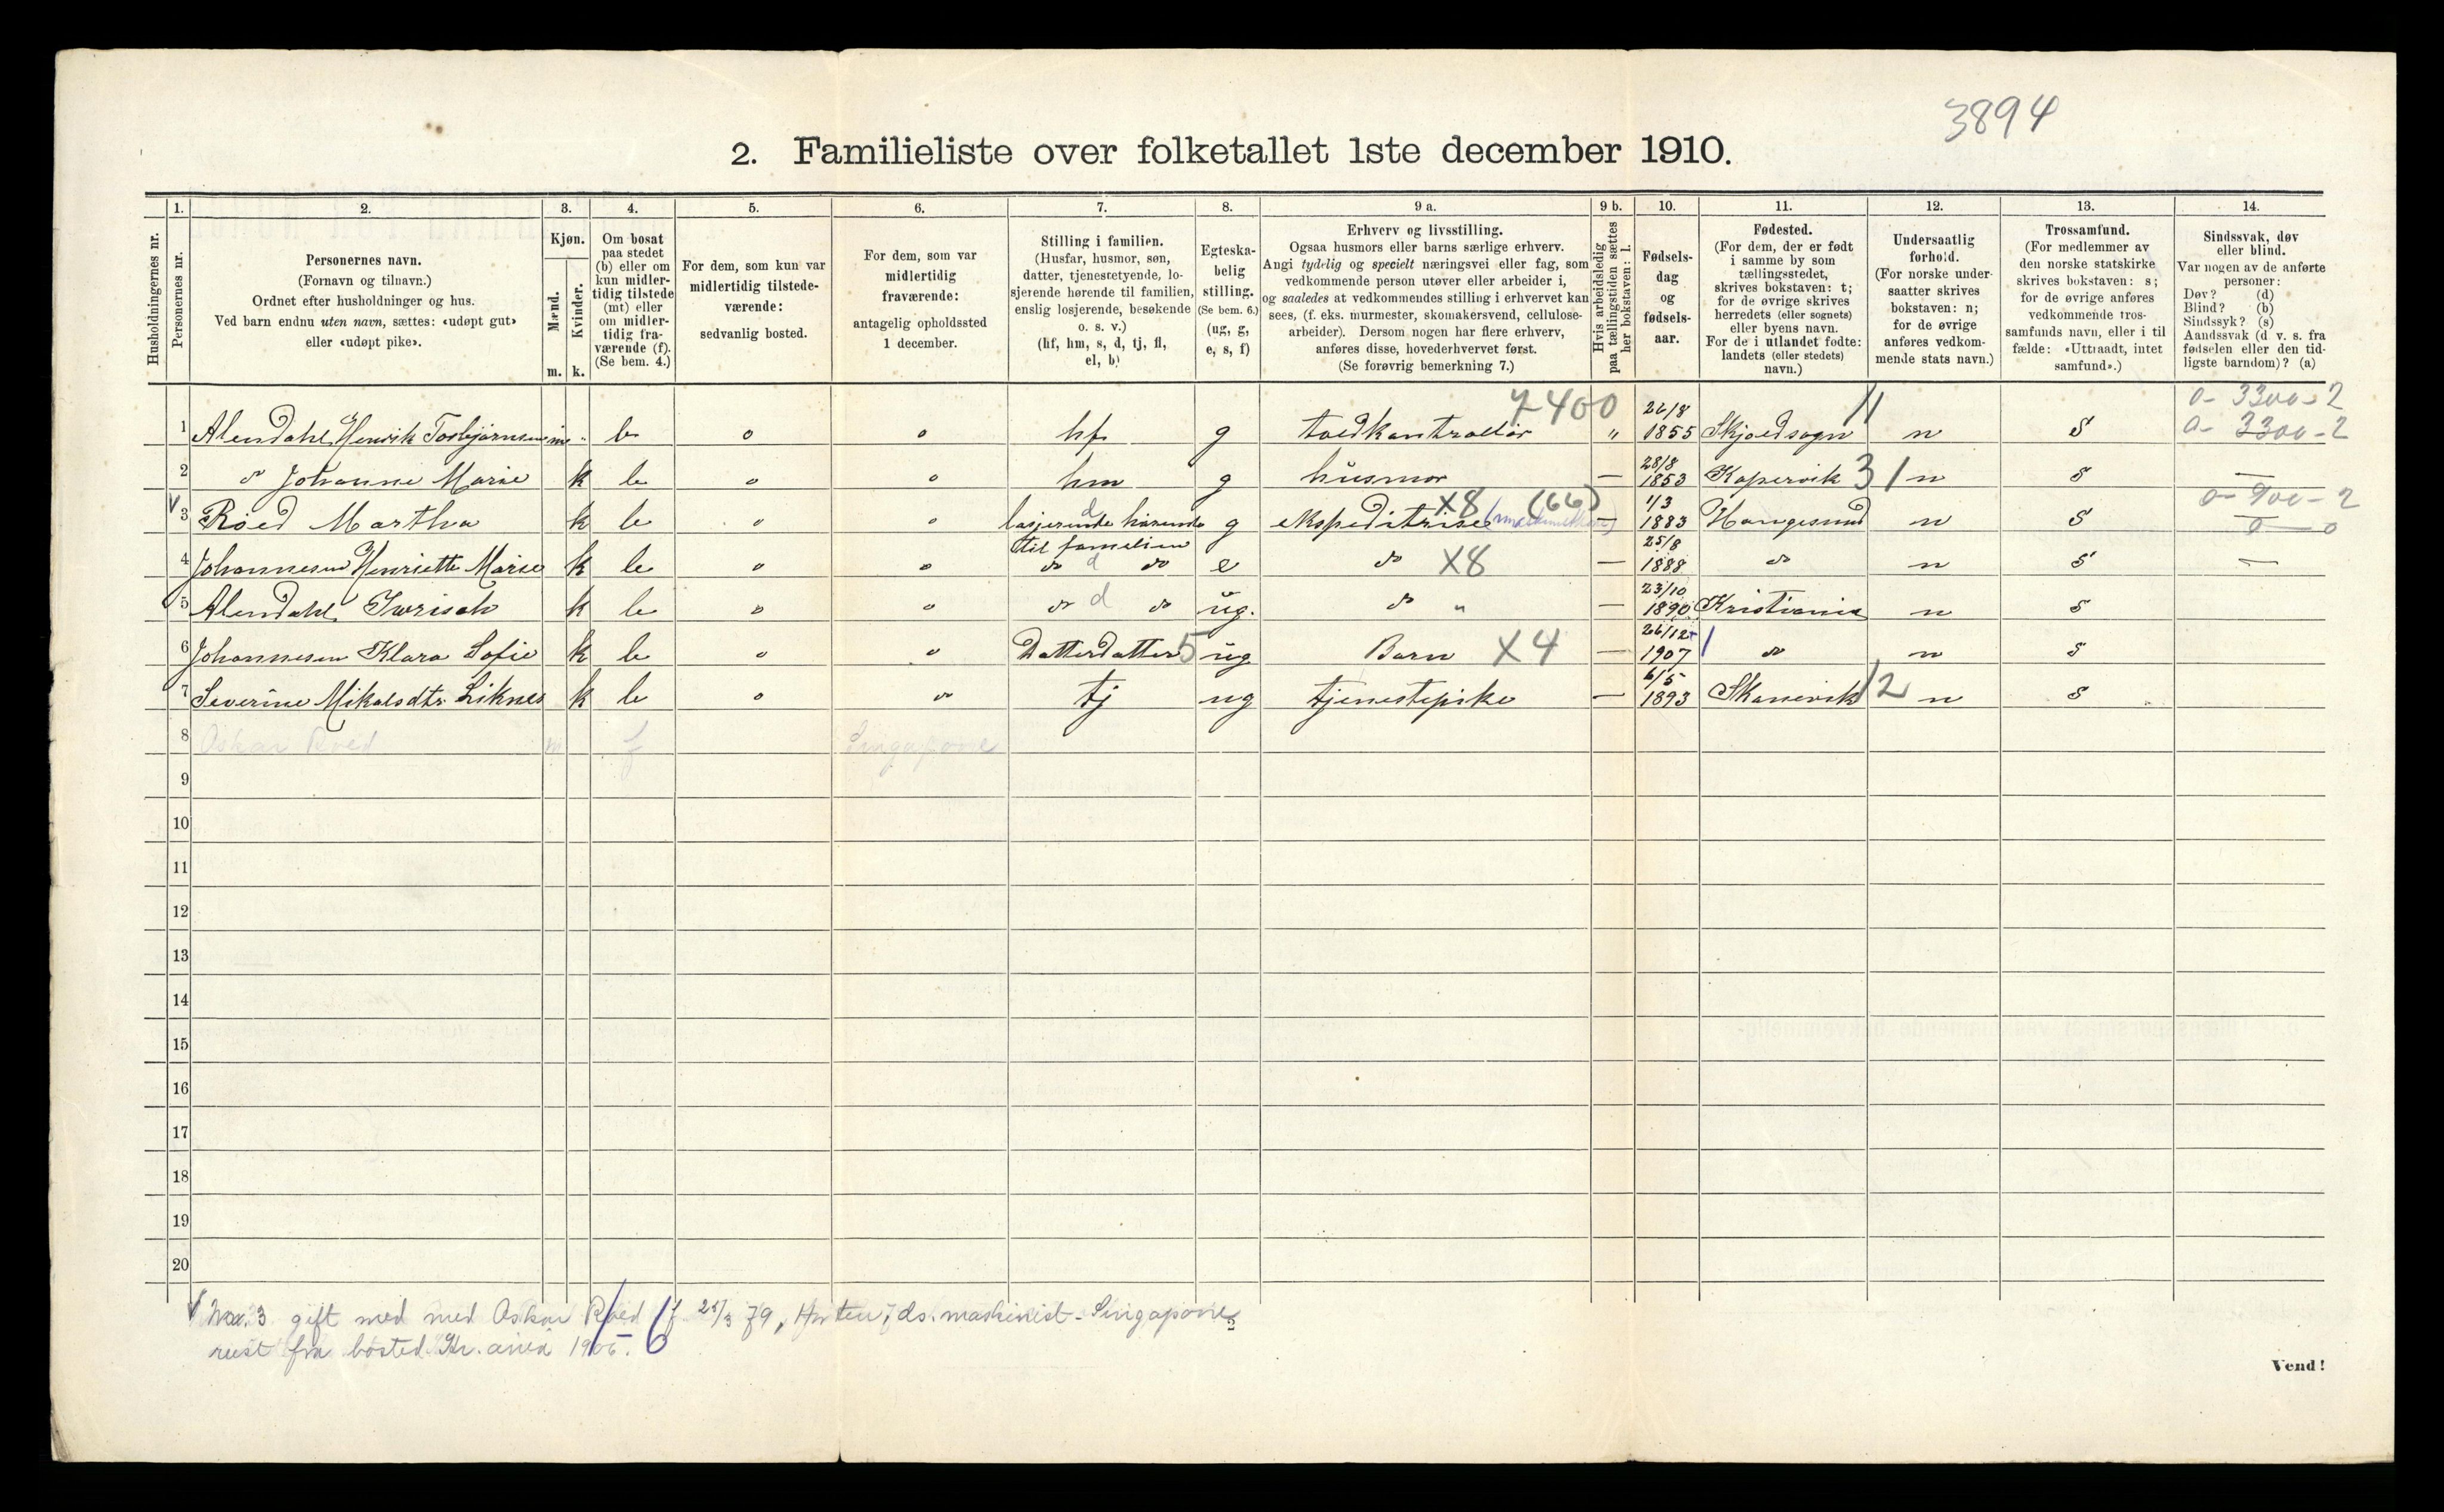 3894
2. Familieliste over folketallet 1ste december 1910.
1. 2. 3. 4. 5. 6. 7. 8. 9 a. 9 b. 10. 11. 12. 13. 14.
Husholdningernes nr.
Personernes nr.
Personernes navn.
(Fornavn og tilnavn.)
Ordnet efter husholdninger og hus.
Ved barn endnu uten navn, sættes: «udøpt gut»
eller «udøpt pike».
Kjøn.
Mænd.
Kvinder.
m. k.
Om bosat
paa stedet
(b) eller om
kun midler-
tidig tilstede
(mt) eller
om midler-
tidig fra-
værende (f).
(Se bem. 4.)
For dem, som kun var
midlertidig tilstede-
værende:
sedvanlig bosted.
For dem, som var
midlertidig
fraværende:
antagelig opholdssted
1 december.
Stilling i familien.
(Husfar, husmor, søn,
datter, tjenestetyende, lo-
sjerende hørende til familien,
enslig losjerende, besøkende
o. s. v.)
(hf, hm, s, d, tj, fl,
el, b)
Egteska-
belig
stilling.
(Se bem. 6.)
(ug, g,
e, s, f)
Erhverv og livsstilling.
Ogsaa husmors eller barns særlige erhverv.
Angi tydelig og specielt næringsvei eller fag, som
vedkommende person utøver eller arbeider i,
og saaledes at vedkommendes stilling i erhvervet kan
sees, (f. eks. murmester, skomakersvend, cellulose-
arbeider). Dersom nogen har flere erhverv,
anføres disse, hovederhvervet først.
(Se forøvrig bemerkning 7.)
Hvis arbeidsledig
paa tællingstiden sættes
her bokstaven: l.
Fødsels-
dag
og
fødsels-
aar.
Fødested.
(For dem, der er født
i samme by som
tællingsstedet,
skrives bokstaven: t;
for de øvrige skrives
herredets (eller sognets)
eller byens navn.
For de i utlandet fødte:
landets (eller stedets)
navn.)
Undersaatlig
forhold.
(For norske under-
saatter skrives
bokstaven: n;
for de øvrige
anføres vedkom-
mende stats navn.)
Trossamfund.
(For medlemmer av
den norske statskirke
skrives bokstaven: s;
for de øvrige anføres
vedkommende tros-
samfunds navn, eller i til
fælde: «Uttraadt, intet
samfund».)
Sindssvak, døv
eller blind.
Var nogen av de anførte
personer:
Døv? (d)
Blind? (b)
Sindssyk? (s)
Aandssvak (d v. s. fra
fødselen eller den tid-
ligste barndom)? (a)
7400 26/8 11 0- 3300-2
1 Alendahl, Henrik Torbjørnsen m " b o o hf g toldkontrollør " 1855 Skjoldsogn n S 0- 3300-2
28/8
2 do Johanne Marie k b o o hm g husmor — 1853 Kopervik 31 n S —
d X8 (66) 1/3 0- 900-2
3 Røed Martha k b o o losjerende hørende g ekspeditrise — 1883 Haugesund n S 0 0
til familien 25/8
4 Johannesen Henriette Marie k b o o do d do e do X8 — 1888 do n S —
23/10
5 Alendahl Ingrisah k b o o do d do ug. do " — 1890 Kristiania n S
26/12
6 Johannesen Klara Sofie k b o o Datterdatter 5 ug Barn X4 — 1907 do n S
6/5
7 Severine Mikalsdtr Liknes k b o o tj ug tjenestepike — 1893 Skanevik 12 n S
8 Oskar Røed m f Singapore
9
10
11
12
13
14
15
16
17
18
19
20
No. 3 gift med med Oskar Røed f 25/3 79, Horten, ds. maskinist - Singapore
reist fra bosted Kr.ania 1906. 6
Vend!